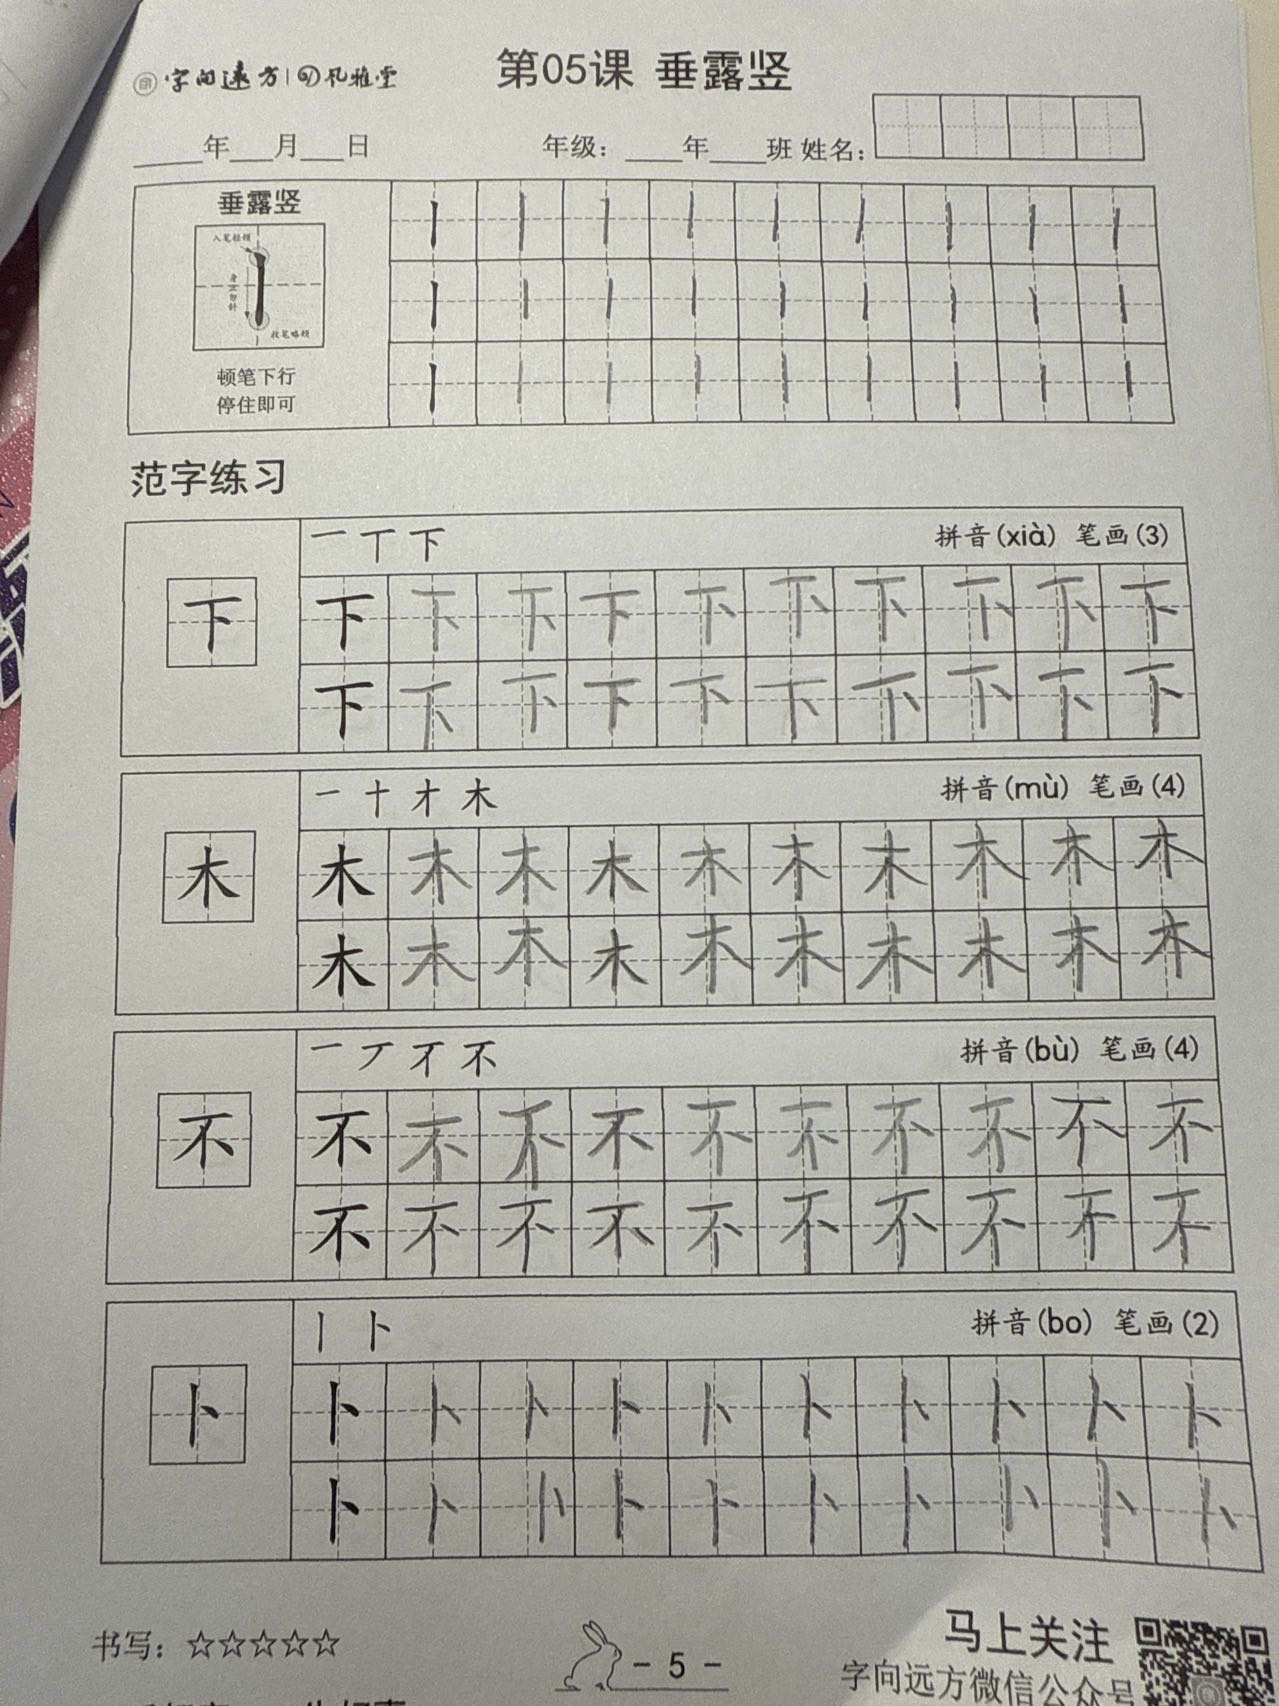 字向远方 孔雅堂
第05课 垂露竖
年 月 日 年级: 年 班 姓名:
垂露竖
入笔轻顿
收笔略顿
顿笔下行
停住即可
范字练习
一 丅 下 拼音(xià) 笔画(3)
下 下 下 下 下 下 下 下 下 下 下
下 下 下 下 下 下 下 下 下 下
一 十 才 木 拼音(mù) 笔画(4)
木 木 木 木 木 木 木 木 木 木 木
木 木 木 木 木 木 木 木 木 木
一 丆 不 拼音(bù) 笔画(4)
不 不 不 不 不 不 不 不 不 不 不
不 不 不 不 不 不 不 不 不 不
丨 卜 拼音(bo) 笔画(2)
卜 卜 卜 卜 卜 卜 卜 卜 卜 卜 卜
卜 卜 卜 卜 卜 卜 卜 卜 卜 卜
书写: ☆☆☆☆☆
- 5 -
马上关注
字向远方微信公众号